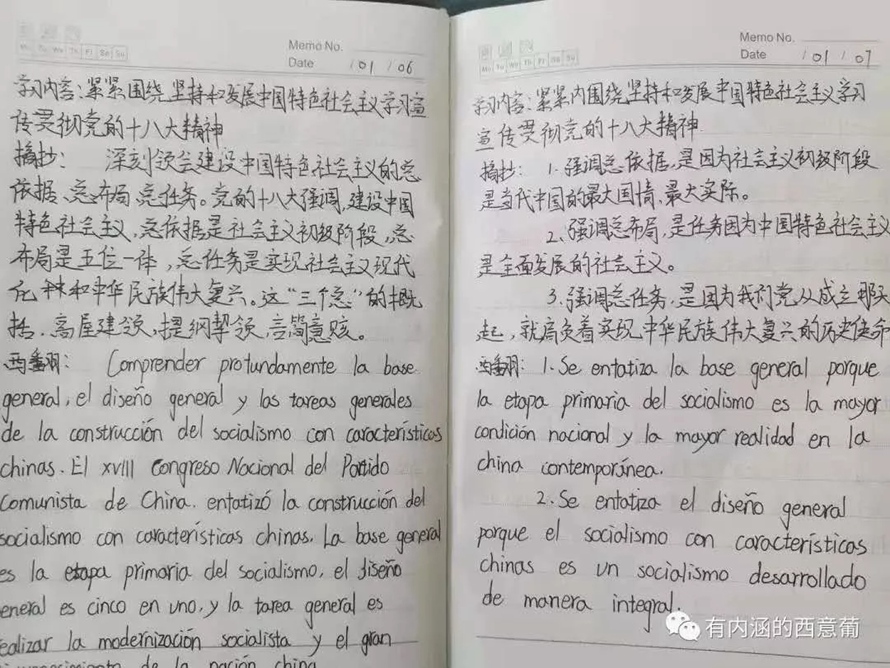 Mo Tu We Th Fr Sa Su
Memo No.
Date / 01 / 06
学习内容:紧紧围绕坚持和发展中国特色社会主义学习宣
传贯彻党的十八大精神
摘抄: 深刻领会建设中国特色社会主义的总
依据、总布局、总任务。党的十八大强调,建设中国
特色社会主义,总依据是社会主义初级阶段,总
布局是五位一体,总任务是实现社会主义现代
化和中华民族伟大复兴。这“三个总”的概
括,高屋建瓴,提纲挈领,言简意赅。
西翻: Comprender protundamente la base
general, el diseño general y las tareas generales
de la construcción del socialismo con características
chinas. El XVIII Congreso Nacional del Partido
Comunista de China. entatizó la construcción del
socialismo con características chinas. La base general
es la etapa primaria del socialismo, el diseño
eneral es cinco en uno, y la tarea general es
ealizar la modernización socialista y el gran
de la nación china
Mo Tu We Th Fr Sa Su
Memo No.
Date / 01 / 07
学习内容:紧紧内围绕坚持和发展中国特色社会主义学习
宣传贯彻党的十八大精神
摘抄: 1. 强调总依据,是因为社会主义初级阶段
是当代中国的最大国情、最大实际。
2、强调总布局,是任务因为中国特色社会主义
是全面发展的社会主义。
3.强调总任务,是因为我们党从成立那天
起,就肩负着实现中华民族伟大复兴的历史使命
西翻: 1. Se entatiza la base general porque
la etapa primaria del socialismo es la mayor
condición nacional y la mayor realidad en la
china contemporánea.
2. Se entatiza el diseño general
porque el socialismo con características
chinas es un socialismo desarrollado
de manera integral.
有内涵的西意葡